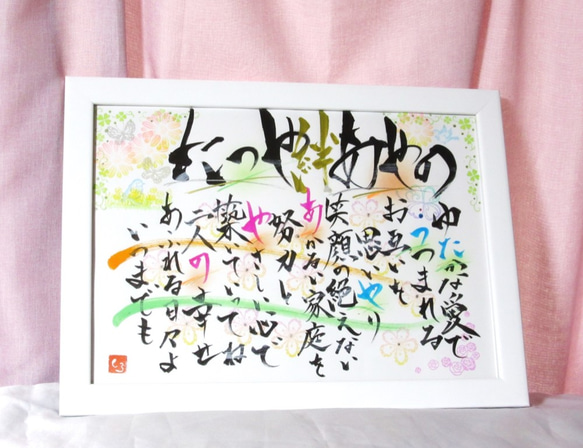 たつや絆あやの
ゆたかな愛で
つつまれる
お互いを
思いやり
笑顔の絶えない
あかるい家庭を
努力と
やさしい心で
築いていってね
二人の幸せ
あふれる日々よ
いつまでも